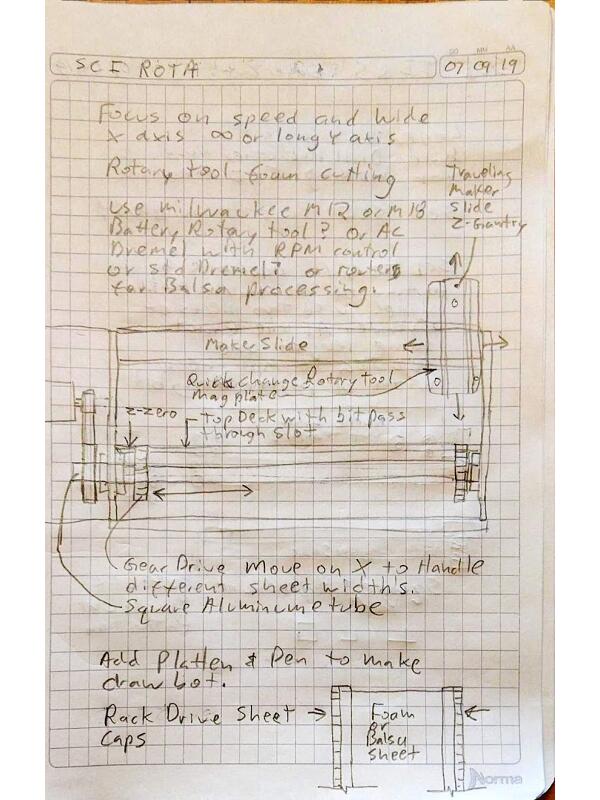 DD MM AA
SCI ROTA 07 09 19
Focus on speed and wide
X axis ∞ or long Y axis
Rotary tool foam cutting
use milwaukee M12 or M18
Battery Rotary tool? or AC
Dremel with RPM control
or std Dremel? or routers
for Balsa processing.
Traveling
Maker
slide
Z-Gantry
MakerSlide
Quick change Rotary tool
mag plate
Z-zero
Top Deck with bit pass
through slot
Gear Drive move on X to Handle
different sheet width's.
Square Aluminume tube
Add Platten & Pen to make
draw bot.
Rack Drive Sheet
Caps
Foam
or
Balsa
sheet
Norma